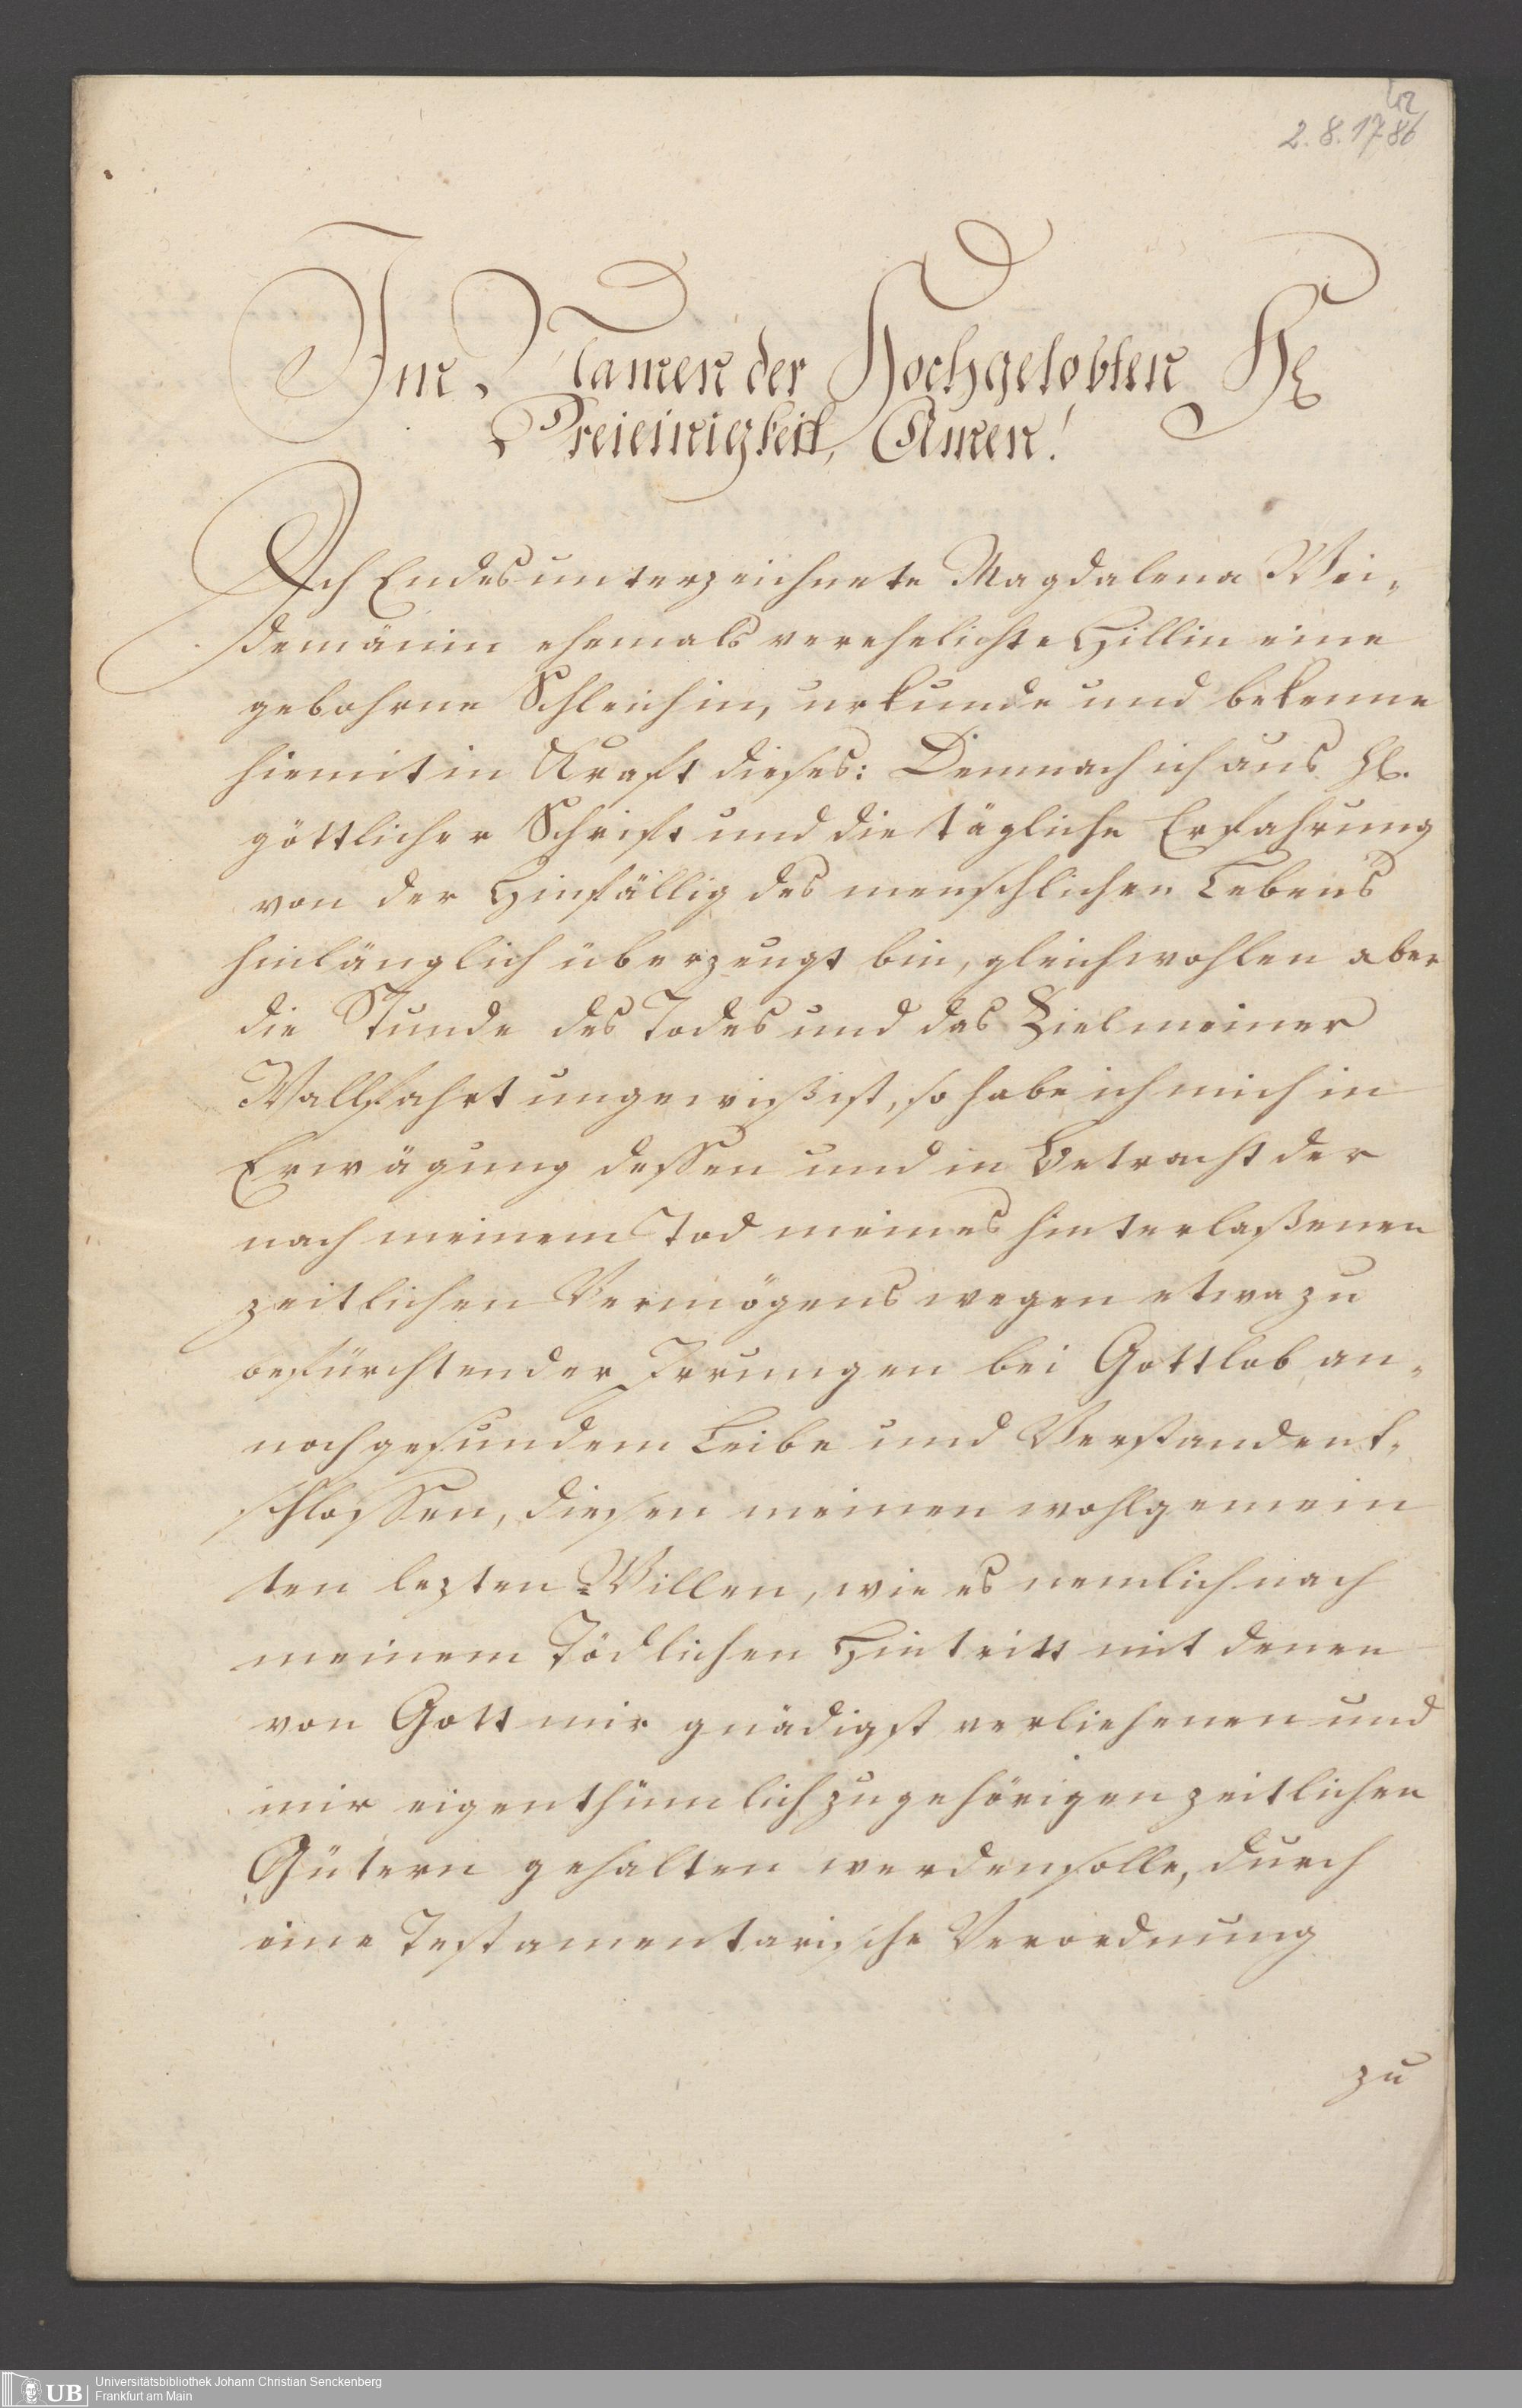 42
2. 8. 1786
Im Namen der Hochgelobten Hl
Dreieinigkeit, Amen!
Ich Endesunterzeichnete Magdalena Wei-
demänin ehemals verehelichte Hillin eine
gebohrne Schleichin, urkunde und bekenne
hiemit in Kraft dieses: Demnach ich aus Hl.
göttlicher Schrift und die tägliche Erfahrung
von der Hinfällig des menschlichen Lebens
hinlänglich überzeugt bin, gleichwohlen aber
die Stunde des Todes und das Ziel meiner
Wallfahrt ungewiß ist, so habe ich mich in
Erwägung dessen und in Betracht der
nach meinem Tod meines hinterlaßenen
zeitlichen Vermögens wegen etwa zu
befürchtender Irrungen bei Gottlob an-
noch gesundem Leibe und Verstand ent-
schlossen, diesen meinen wohlgemein
ten lezten Willen, wie es nemlich nach
meinem tödlichen Hintritt mit denen
von Gott mir gnädigst verliehenen und
mir eigenthümlich zugehörigen zeitlichen
Gütern gehalten werden solle, durch
eine Testamentarische Verordnung
zu
UB
Universitätsbibliothek Johann Christian Senckenberg
Frankfurt am Main